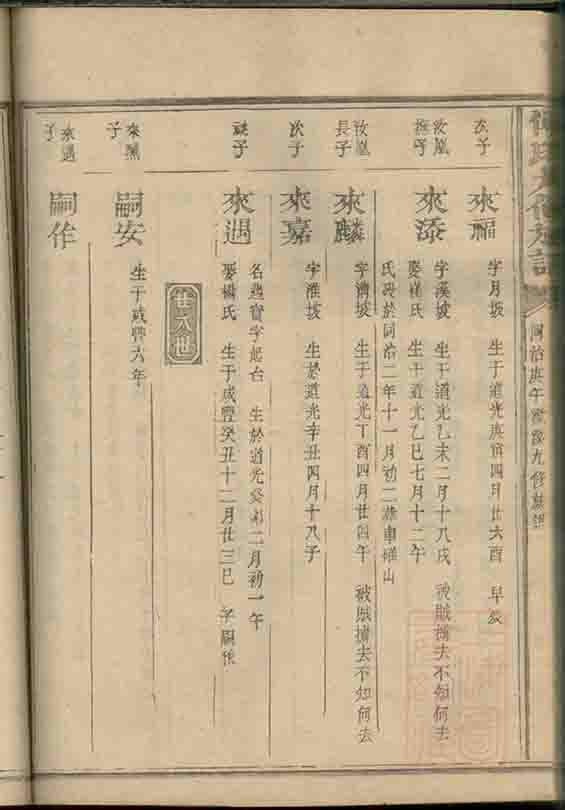 同治庚午
九修族譜
次子
來福
字月坡 生于道光庚寅四月廿六酉 早歿
汝鳳
撫子
來添
字漢坡 生于道光乙未二月十八戌 被賊擄去不知何去
娶 氏 生于道光乙巳七月十二午
氏歿於同治二年十一月初二葬車 山
汝鳳
長子
來麟
字濟坡 生于道光丁酉四月廿四午 被賊擄去不知何去
次子
來嘉
字淮坡 生於道光辛丑四月十八子
子
來遇
名 寶字起台 生於道光癸卯二月初一午
娶楊氏 生于咸豐癸丑十二月廿三巳 子嗣作
廿八世
來 
子
嗣安
生于咸豐六年
來遇
子
嗣作